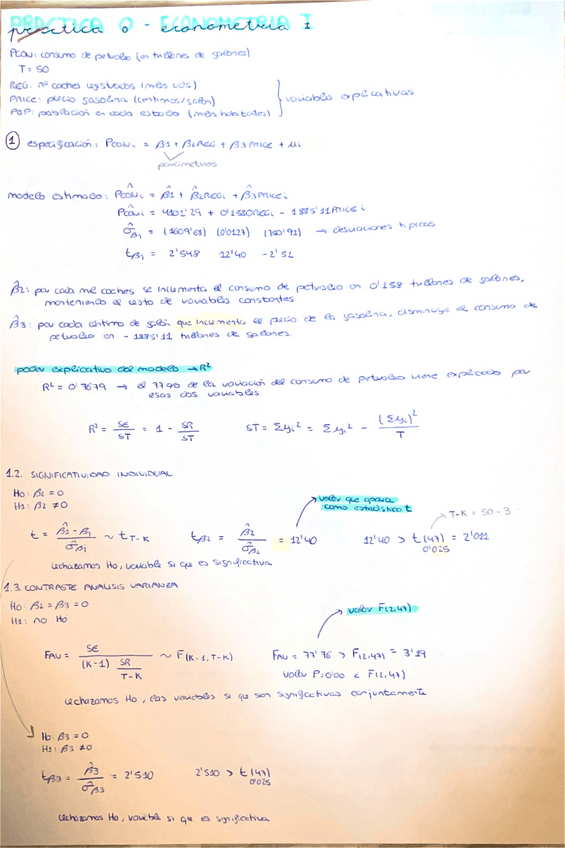 práctica 0 - econometría I
PCON: consumo de petróleo (en trillones de galones)
T = 50
REG: nº coches registrados (miles uds)
PRICE: precio gasolina (céntimos/galón)
POP: población en cada estado (miles habitantes)
variables explicativas
① especificación: PCONi = β1 + β2REGi + β3PRICE + ui
parámetros
modelo estimado: PĈONi = β̂1 + β̂2REGi + β̂3PRICEi
PĈONi = 4101'29 + 0'1580REGi - 1885'11PRICEi
σ̂β̂i = (1609'68) (0'0127) (750'91) → desviaciones típicas
tβi = 2'548 12'40 -2'51
β̂2: por cada mil coches se incrementa el consumo de petróleo en 0'158 trillones de galones,
manteniendo el resto de variables constantes
β̂3: por cada céntimo de galón que incrementa el precio de la gasolina, disminuye el consumo de
petróleo en - 1885'11 trillones de galones.
poder explicativo del modelo → R²
R² = 0'7679 → el 77% de la variación del consumo de petróleo viene explicado por
esas dos variables
R² = SE/ST = 1 - SR/ST ST = Σyi² = Σyi² - (Σyi)²/T
1.2. SIGNIFICATIVIDAD INDIVIDUAL
H0: β2 = 0
H1: β2 ≠ 0
valor que aparece
como estadístico t
T-K = 50 - 3
t = β̂i - βi / σ̂β̂i ~ t T-K tβ2 = β̂2 / σ̂β2 = 12'40 12'40 > t(47) 0'025 = 2'011
rechazamos H0, variable si que es significativa
1.3. CONTRASTE ANALISIS VARIANZA
H0: β2 = β3 = 0
H1: no H0
valor F(2,47)
FAV = SE / (K-1) SR/T-K ~ F(K-1, T-K) FAV = 77'76 > F(2,47) = 3'19
valor P = 0'00 < F(2,47)
rechazamos H0, las variables si que son significativas conjuntamente
H0: β3 = 0
H1: β3 ≠ 0
tβ3 = β̂3 / σ̂β3 = 2'510 2'510 > t(47) 0'025
rechazamos H0, variable si que es significativa